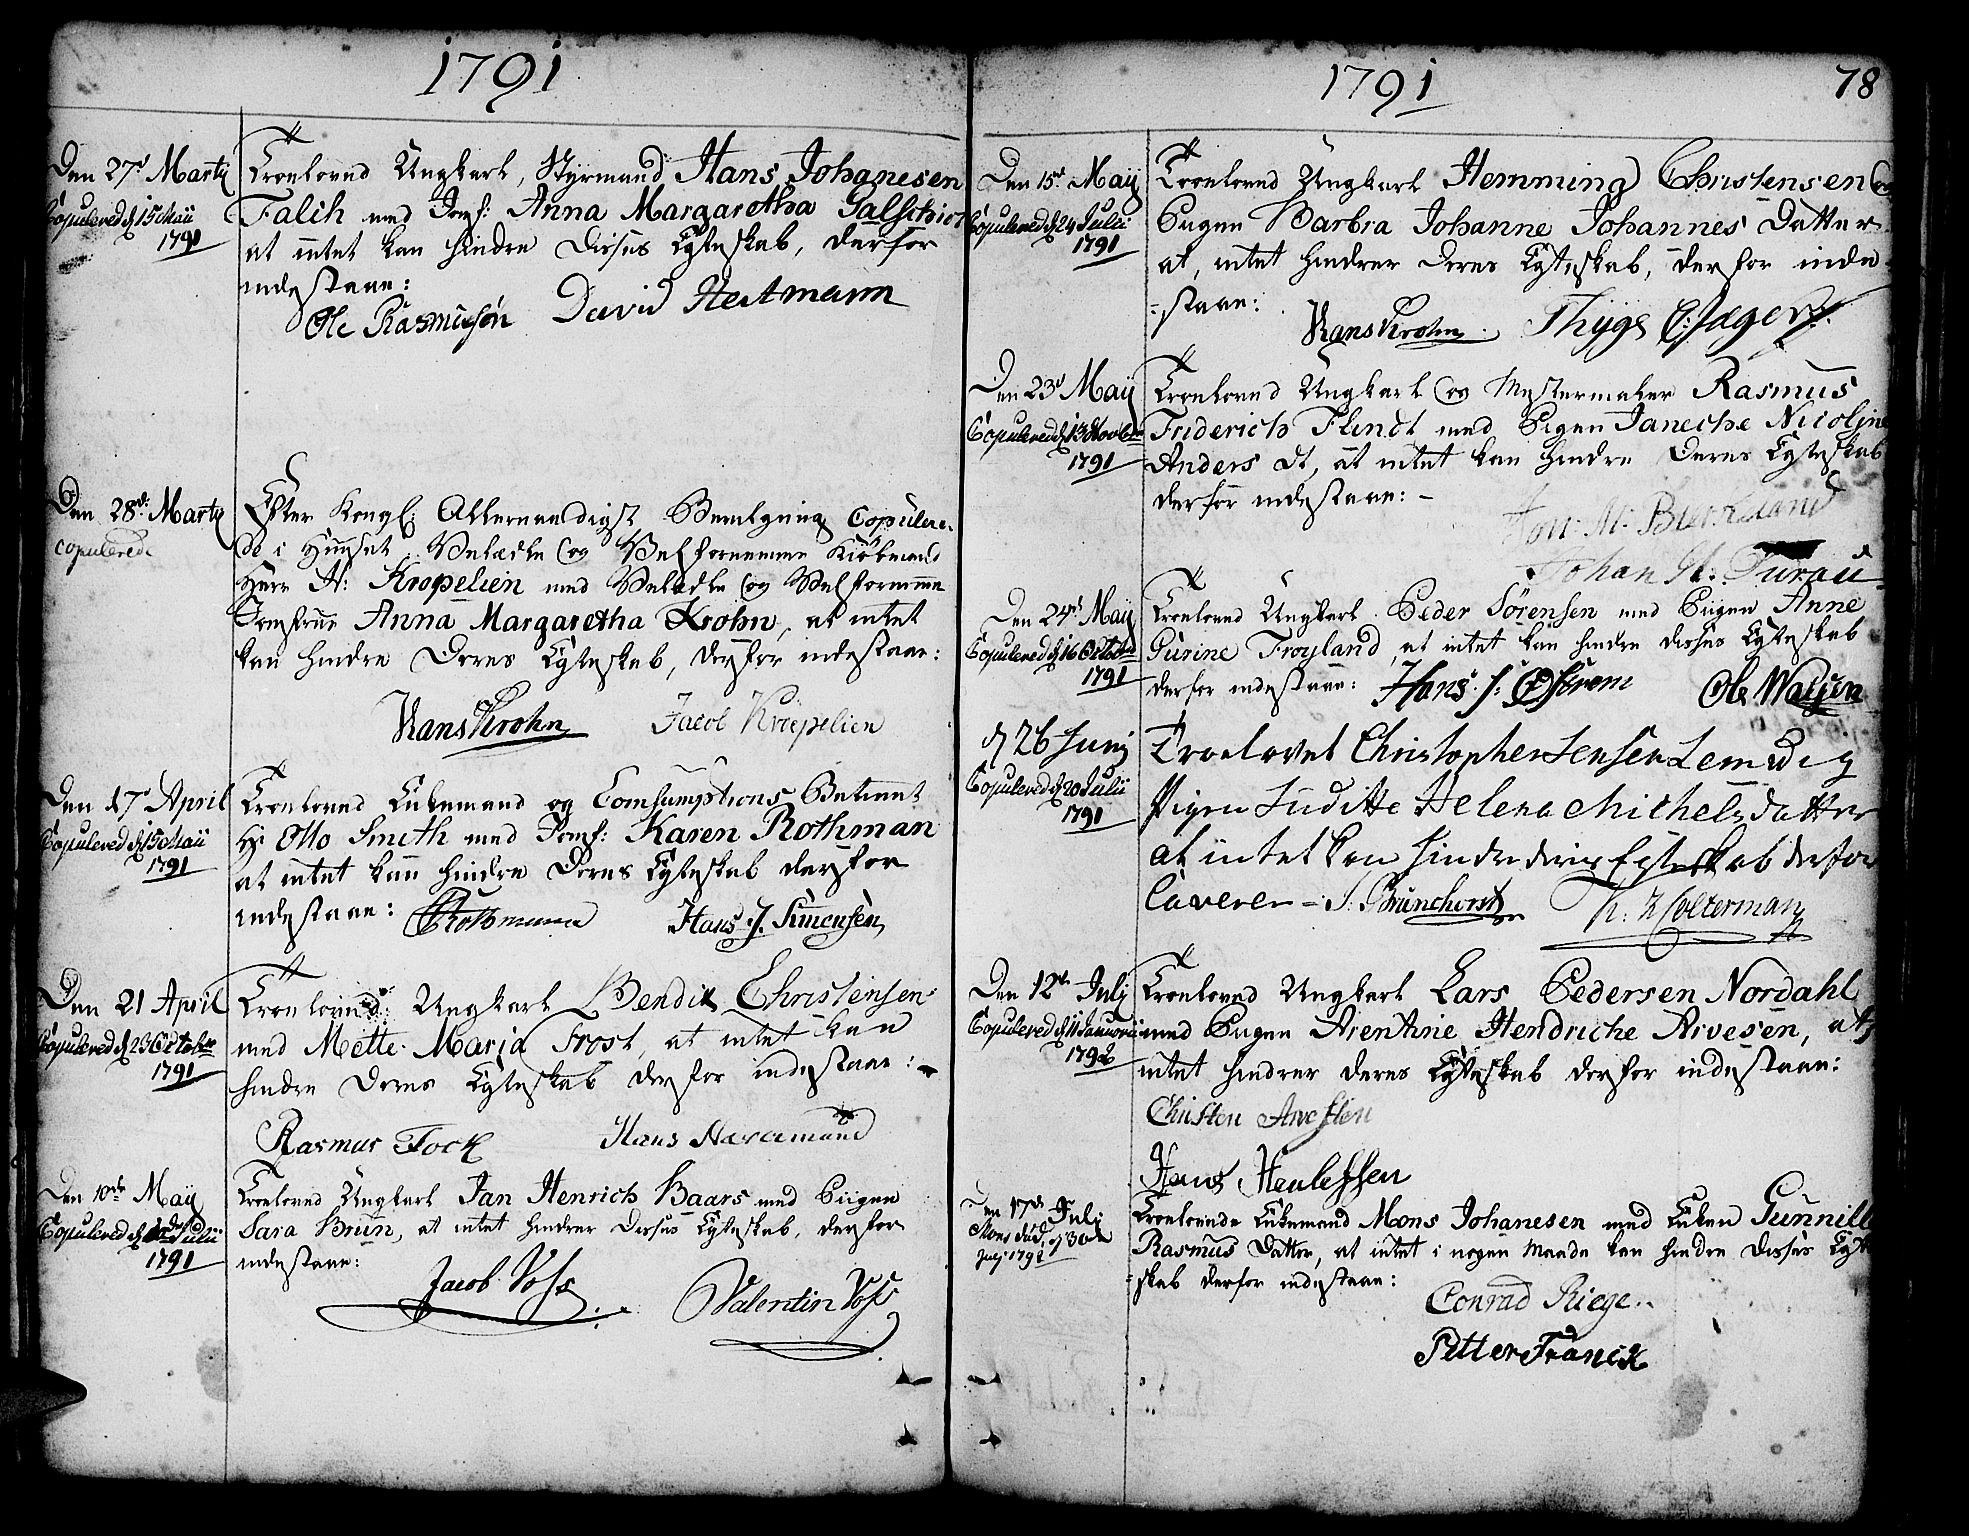 1791
Den 27de Martÿ
Copulered d 15 Maii
1791
Troelovd Ungkarl, Styrmand Hans Johanesen
Falch med Jomf: Anna Margaretha
at intet kan hindre Disses Egteskab, derfor
indestaae:
Ole Rasmusøn David Hertmann
Den 28de Martÿ
copulered
Efter Kongl: Allernaadigst Bevilgning Copulere-
de i Huuset Velædle og Velfornemme Kiøbmand
Herr H: Kropelien med Velædle og Velfornemme
Jomfrue Anna Margaretha Krohn, at intet
kan hindre Deres Egteskab, derfor indestaae:
Hans Krohn Jacob Kröepelien
Den 17de April
Copulered d 15 Maii
1791
Troelovd Enkemand og Comsumptions Betient
Hr Otto Smith med Jomf: Karen Rothman
at intet kan hindre Deres Egteskab derfor
indestaae: Rothmann Hans J. Simensen
Den 21 April
Copulered d 23 October
1791
Troelovd Ungkarl Bendix Christensen
med Mette Maria Frost, at intet kan
hindre Deres Egteskab derfor indestaae:
Rasmus Fock Hans
Den 10de Maÿ
Copulered d Julii
1791
Troelovd Ungkarl Jan Henrich Baars med Pigen
Sara Brun, at intet hindrer Disses Egteskab, derfor
indestaae:
Jacob Voss Valentin Voss
1791 78
Den 15de Maÿ
Copulered d 24 Julii
1791
Troelovd Ungkarl Hemming Christensen og
Pigen Barbra Johanne Johannes Datter
at, intet hindrer Deres Egteskab, derfor inde
=staae:
Hans Krohn Thyge C: Jæger
Den 23de Maÿ
Copulered d 13 Novbr
1791
Troelovd Ungkarl og Mestermaker Rasmus
Friderich Flindt med Pigen Janeche Nicoline
Anders Dt, at intet kan hindre Deres Egteskab
derfor indestaae: -
Jon: M:
Johan
Den 24de Maÿ
Copulered d 16 October
1791
Troelovd Ungkarl Peder Sörensen med Pigen Anne
Gurine Froyland, at intet kan hindre disses Egteskab
derfor indestaae: Hans J: Ole
d 26 Junÿ
Copulered d 20 Julii
1791
Troelovet Christopher Jensen Lemvig
Pigen Juditte Helena Michelsdatter
at intet kan hindre deris Egteskab derfor
Caverer - J. Brunchorst H. Kolterman
Den 12te July
Copulered d 11 Januarii
1792
Troelovd Ungkarl Lars Pedersen Nordahl
med Pigen Arentine Hendriche Arvesen, at
intet hindrer deres Egteskab derfor indestaae:
Christen
Hans
Den 17de July
Mons død, d 30te
July 1791
Troelovede Enkemand Mons Johanesen med Enken Gunnild
Rasmus Datter, at intet i nogen Maade kan hindre Disses Egte
=skab derfor indestaae:
Conrad Riege
Petter Franck